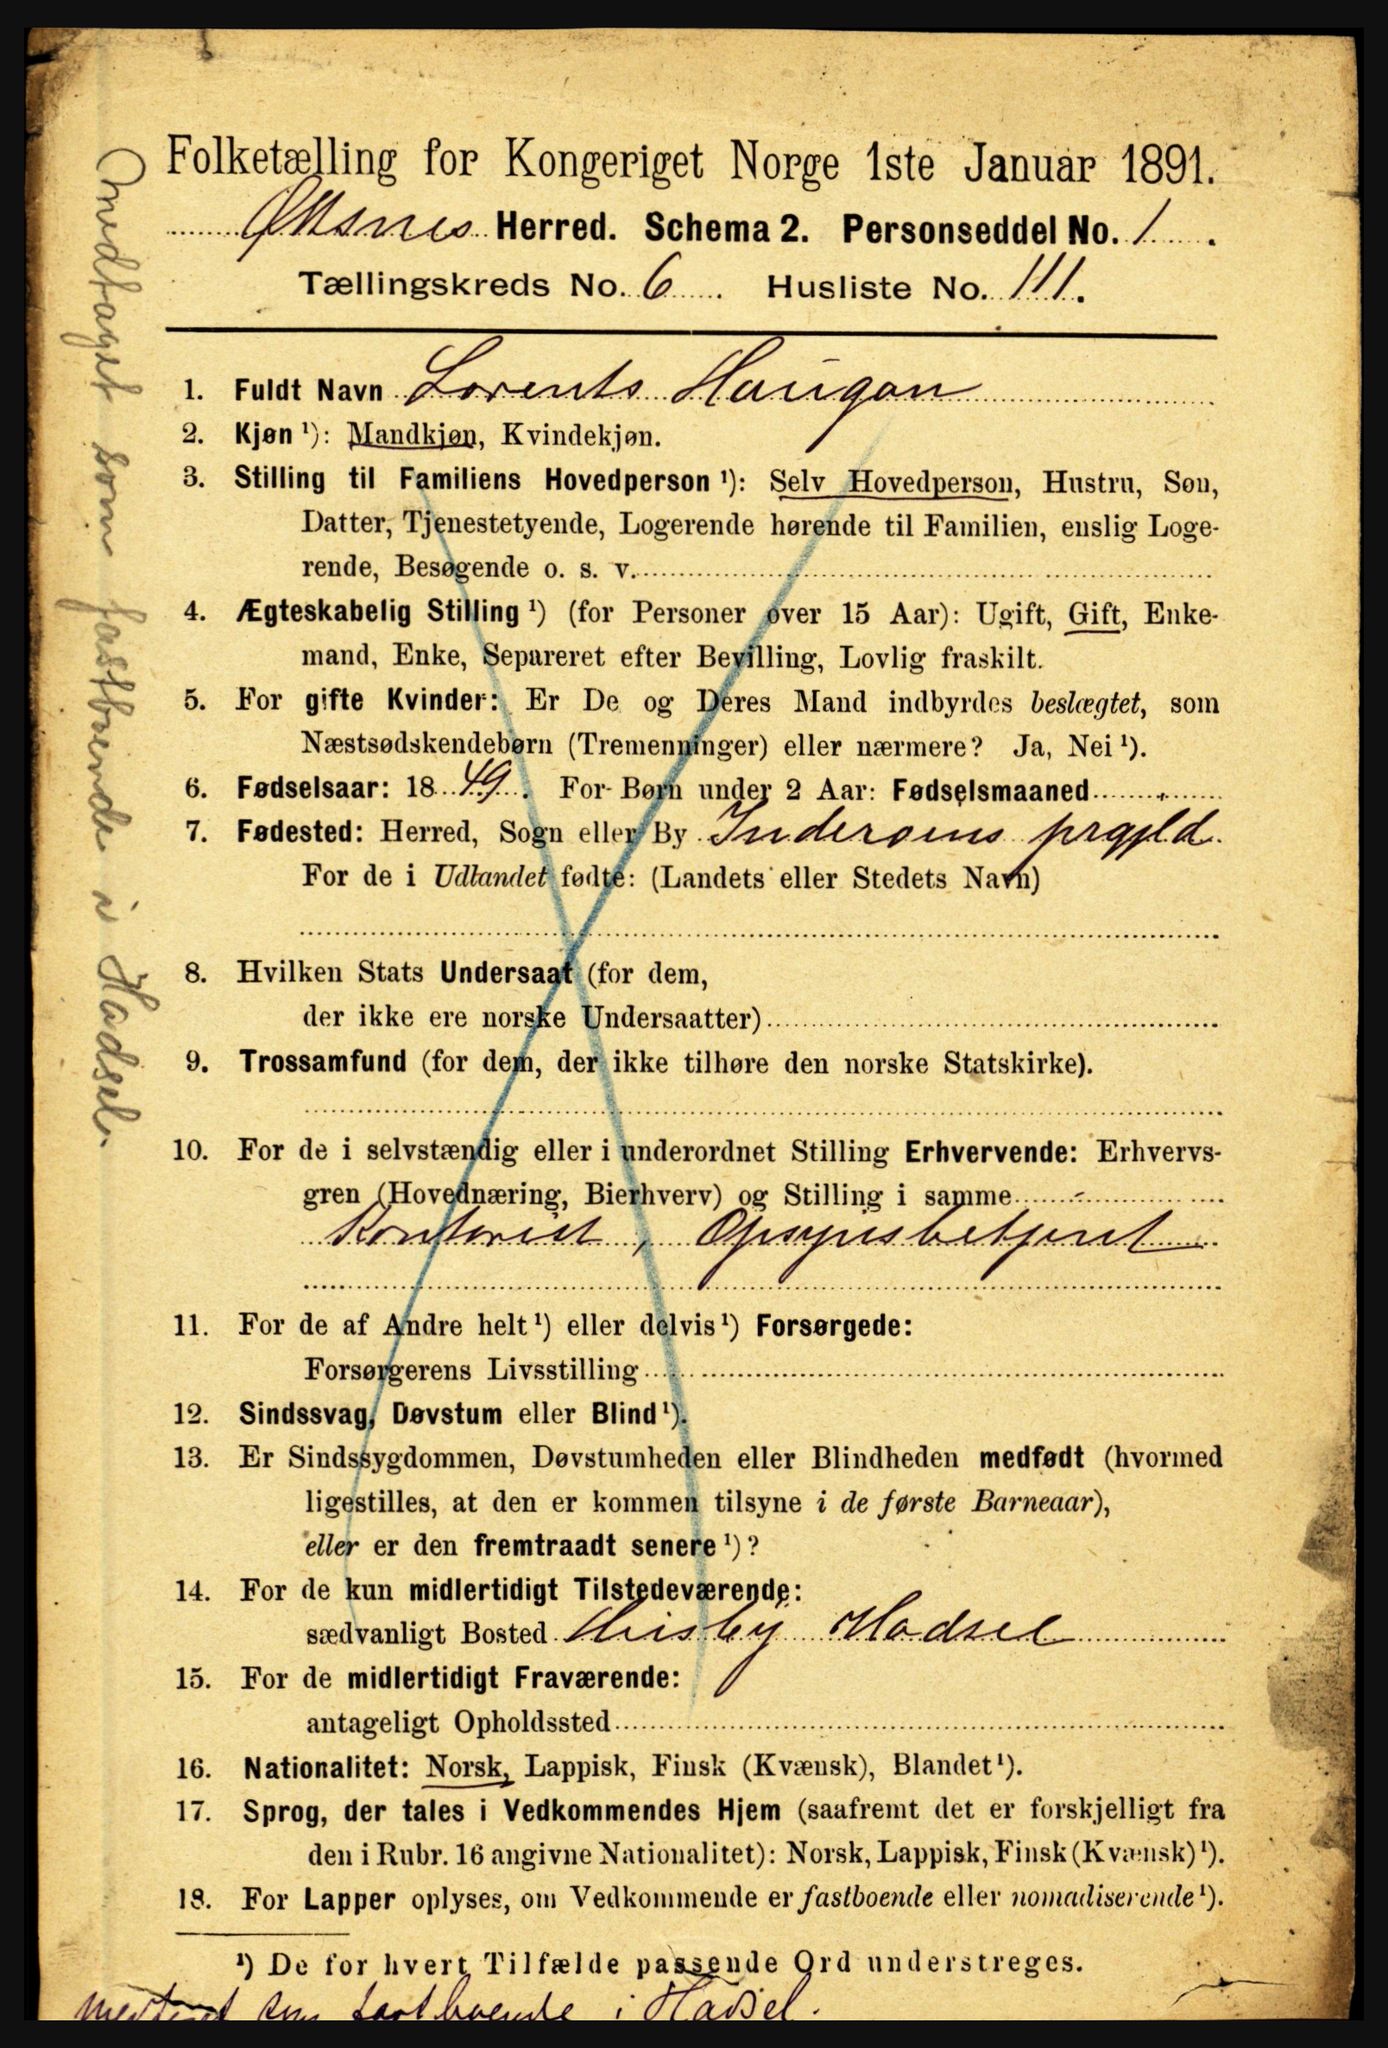 Folketælling for Kongeriget Norge 1ste Januar 1891.
Øksnes Herred. Schema 2. Personseddel No. 1.
Tællingskreds No. 6. Husliste No. 111.
1. Fuldt Navn Lorents Haugan
2. Kjøn ¹): Mandkjøn, Kvindekjøn.
3. Stilling til Familiens Hovedperson ¹): Selv Hovedperson, Hustru, Søn,
Datter, Tjenestetyende, Logerende hørende til Familien, enslig Loge-
rende, Besøgende o. s. v.
4. Ægteskabelig Stilling ¹) (for Personer over 15 Aar): Ugift, Gift, Enke-
mand, Enke, Separeret efter Bevilling, Lovlig fraskilt.
5. For gifte Kvinder: Er De og Deres Mand indbyrdes beslægtet, som
Næstsødskendebørn (Tremenninger) eller nærmere? Ja, Nei ¹).
6. Fødselsaar: 1849. For Børn under 2 Aar: Fødselsmaaned
7. Fødested: Herred, Sogn eller By Inderøens prgjld.
For de i Udlandet fødte: (Landets eller Stedets Navn)
8. Hvilken Stats Undersaat (for dem,
der ikke ere norske Undersaatter)
9. Trossamfund (for dem, der ikke tilhøre den norske Statskirke).
10. For de i selvstændig eller i underordnet Stilling Erhvervende: Erhvervs-
gren (Hovednæring, Bierhverv) og Stilling i samme
Kontorist, Opsynsbetjent
11. For de af Andre helt ¹) eller delvis ¹) Forsørgede:
Forsørgerens Livsstilling
12. Sindssvag, Døvstum eller Blind ¹).
13. Er Sindssygdommen, Døvstumheden eller Blindheden medfødt (hvormed
ligestilles, at den er kommen tilsyne i de første Barneaar),
eller er den fremtraadt senere ¹)?
14. For de kun midlertidigt Tilstedeværende:
sædvanligt Bosted Husby Hadsel
15. For de midlertidigt Fraværende:
antageligt Opholdssted
16. Nationalitet: Norsk, Lappisk, Finsk (Kvænsk), Blandet ¹).
17. Sprog, der tales i Vedkommendes Hjem (saafremt det er forskjelligt fra
den i Rubr. 16 angivne Nationalitet): Norsk, Lappisk, Finsk (Kvænsk) ¹).
18. For Lapper oplyses, om Vedkommende er fastboende eller nomadiserende ¹).
¹) De for hvert Tilfælde passende Ord understreges.
som fastboende i Hadsel.
medtaget som fastboende i Hadsel.